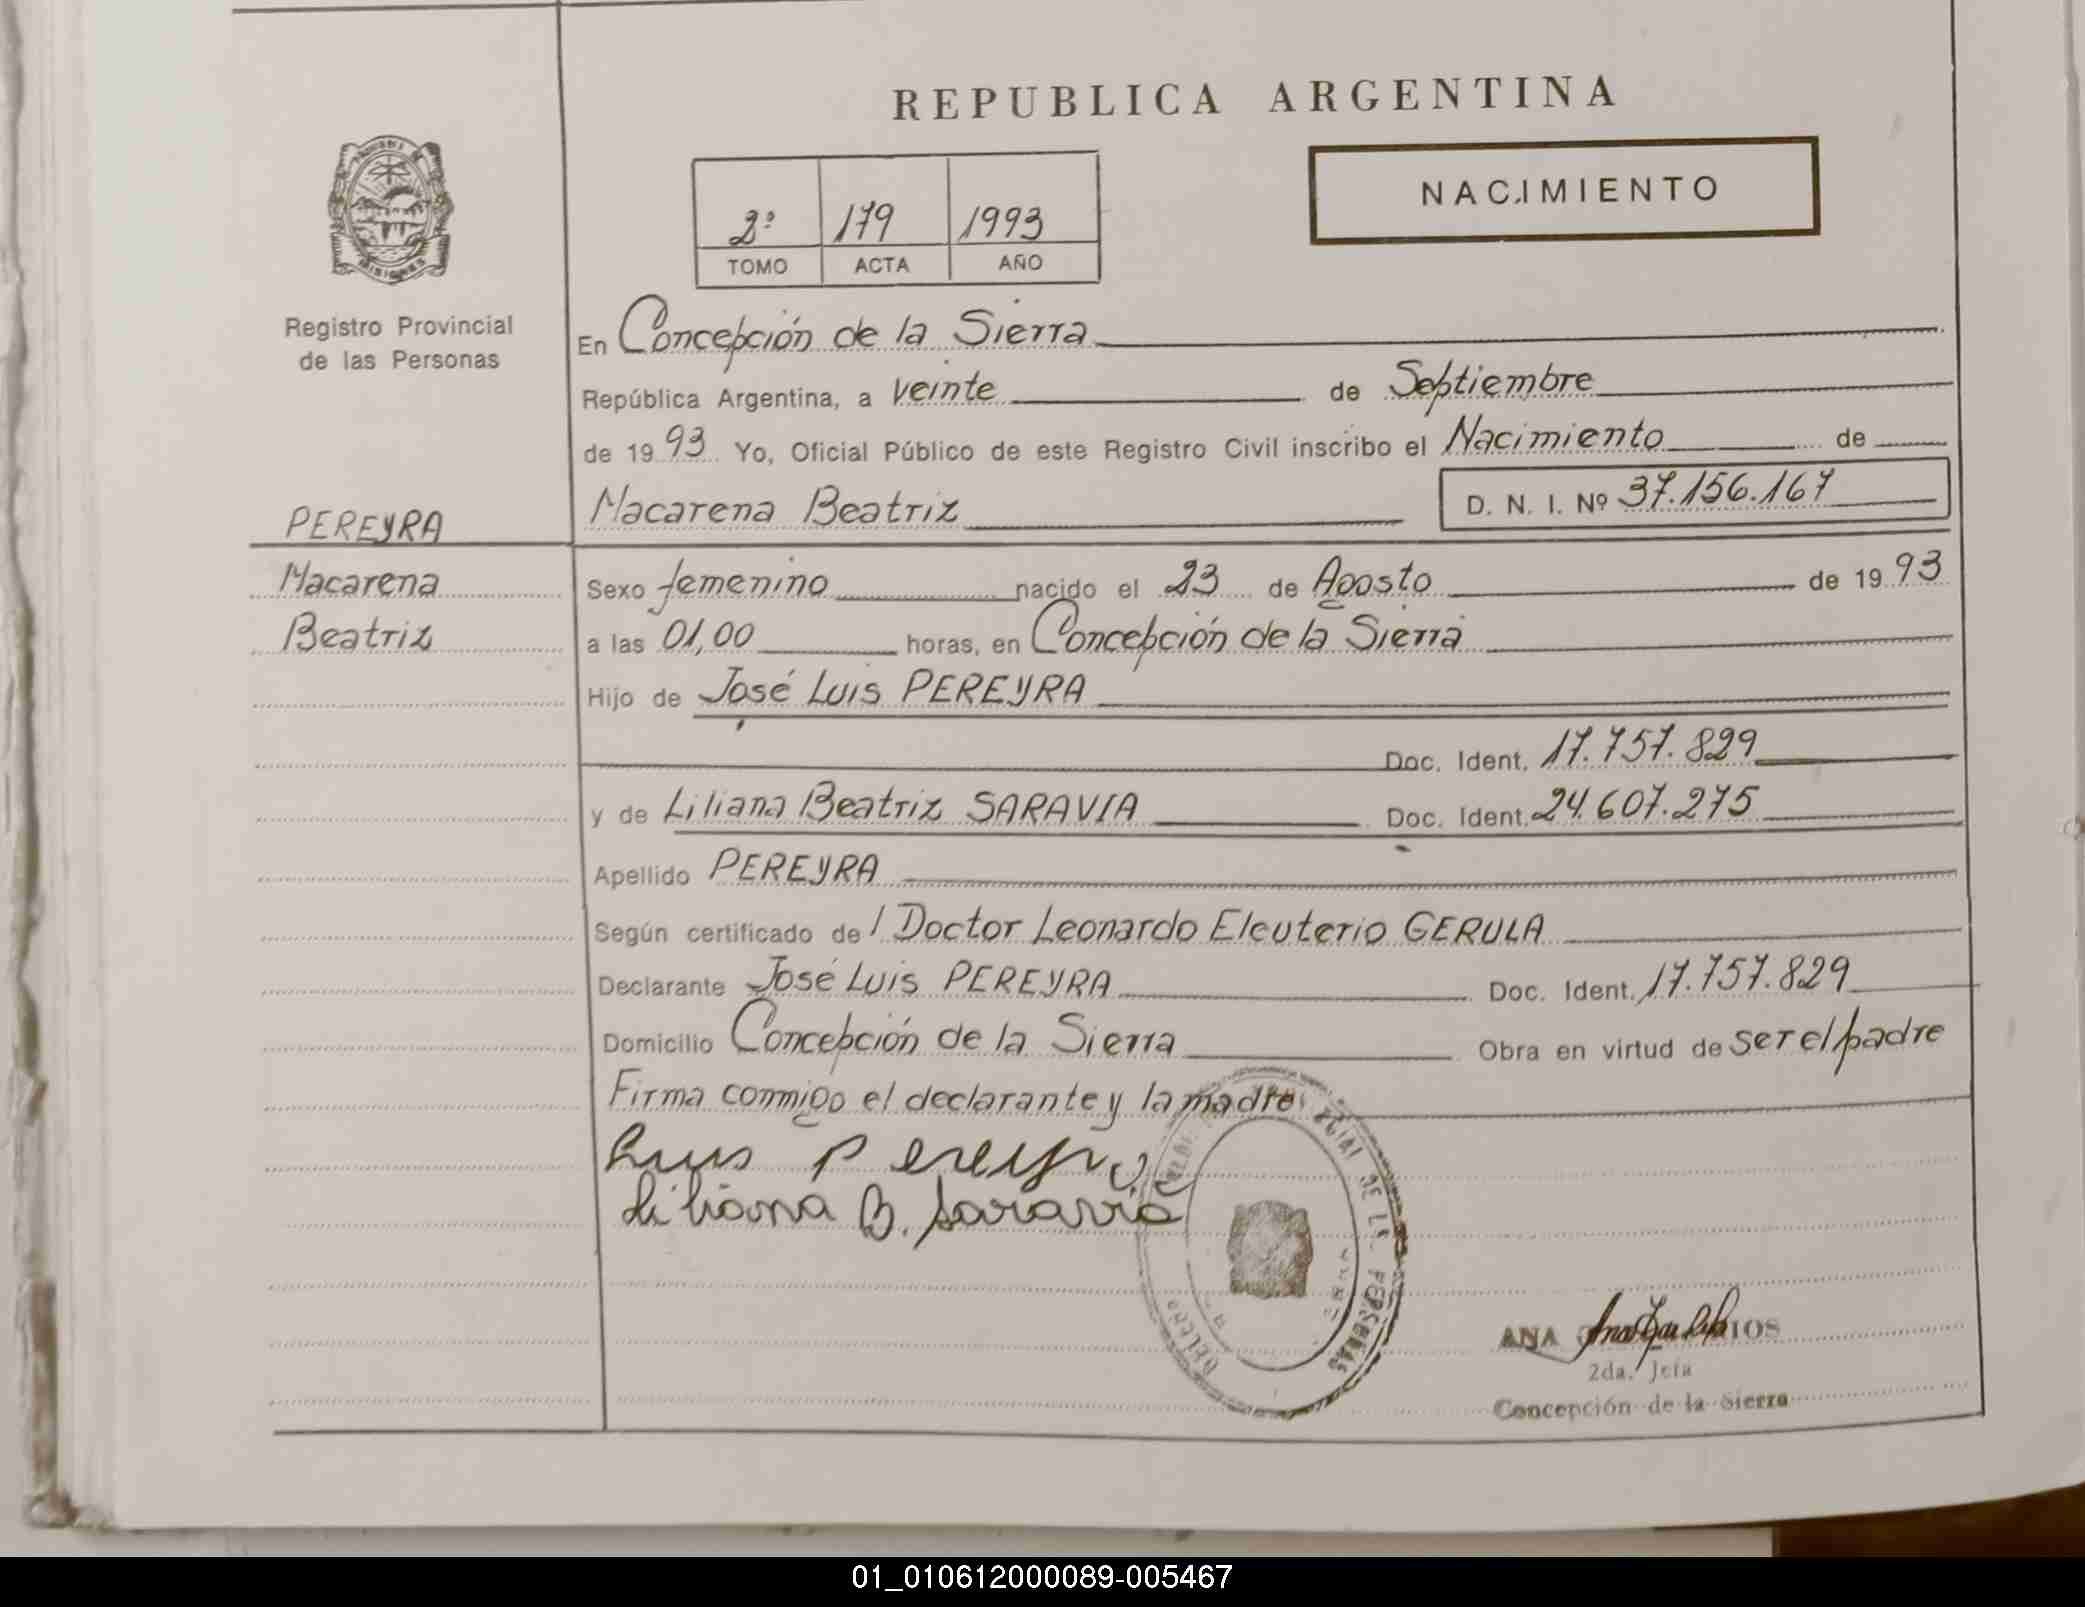 REPUBLICA ARGENTINA
NACIMIENTO
2º 179 1993
TOMO ACTA AÑO
MISIONES
Registro Provincial
de las Personas
En Concepción de la Sierra
República Argentina, a veinte de Septiembre
de 1993 Yo, Oficial Público de este Registro Civil inscribo el Nacimiento de
Macarena Beatriz D. N. I. Nº 37.156.167
PEREYRA
Macarena
Beatriz
Sexo femenino nacido el 23 de Agosto de 1993
a las 01,00 horas, en Concepción de la Sierra
Hijo de José Luis PEREYRA
Doc. Ident. 17.757.829
y de Liliana Beatriz SARAVIA Doc. Ident. 24.607.275
Apellido PEREYRA
Según certificado del Doctor Leonardo Eleuterio GERULA
Declarante José Luis PEREYRA Doc. Ident. 17.757.829
Domicilio Concepción de la Sierra Obra en virtud de ser el padre
Firma conmigo el declarante y la madre
Luis Pereyra
Liliana B. Saravia
DE LAS PERSONAS
ANA
2da. Jefa
Concepción de la Sierra
01_010612000089-005467